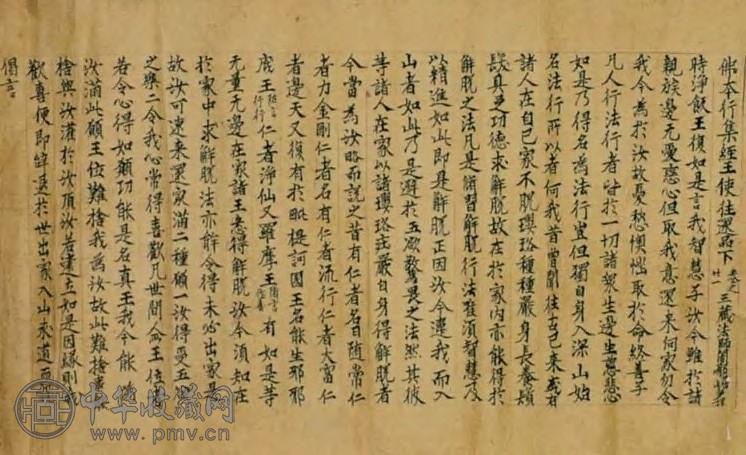 佛本行集經王使往還品下 卷之廿一 三藏法師闍那崛多譯
時淨飯王復如是言我智慧子汝今雖於諸
親族邊无愛戀心但取我意還來向家勿令
我今為於汝故憂愁懊惱取於命終善子
凡人行法行者皆於一切諸眾生邊生慈悲
如是乃得名為法行豈但獨自身入深山始
名法行所以者何我昔曾聞往古已來或有
諸人在自己家不脫瓔珞種種嚴身長養鬚
髮真更功德求解脫故在於家內亦能得於
解脫之法凡是備習解脫行法唯須智慧及
以精進如此即是解脫正因汝今違我而入
山者如此乃是避於五欲驚畏之法然其彼
等諸人在家以諸瓔珞莊嚴自身得解脫者
今當為汝略而說之昔有仁者名曰隨常仁
者力金剛仁者名有仁者流行仁者大富仁
者邊天又復有於毗提訶國王名能生耶耶
底王 隋言行行 仁者淨仙又羅摩王 隋言能喜 有如是等
无量无邊在家諸王悉得解脫汝今須知在
於家中求解脫法亦能令得未必出家是
故汝可速來還家滿二種願一汝得受五
之樂二令我心常得喜歡凡世間
若令心得如願功能是名真王我今能
汝滿此願王位難捨我為汝故此難捨
捨與汝灌於汝頂汝若建立如是因緣則
歡喜便即許還於世出家入山求道
偈言
中华收藏网
www.pmv.cn